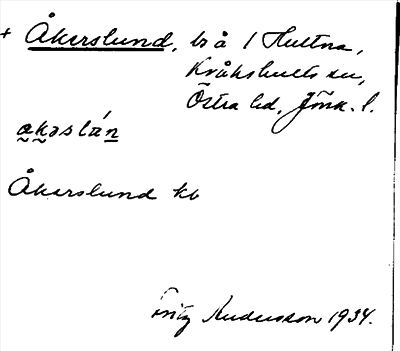 + Åkerslund, ts å 1 Hultna,
Kråkshults sn,
Östra hd, Jönk. l.
åkəslún
Åkerslund kb
Fritz Andersson 1934.